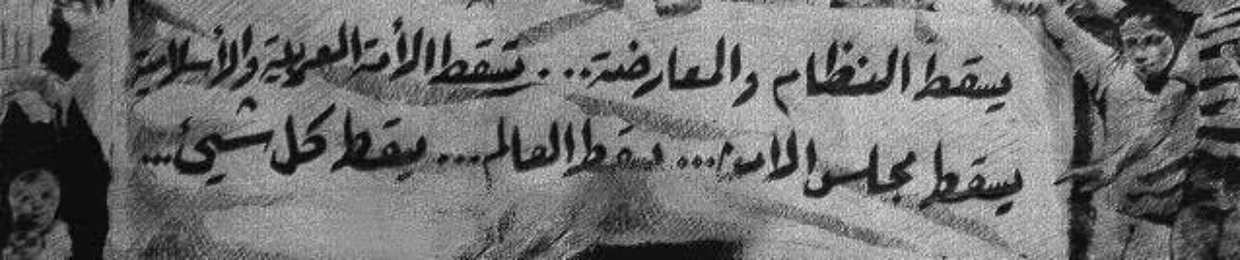 يسقط النظام والمعارضة... تسقط الأمة العربية والأسلامية
يسقط مجلس الامن... يسقط العالم... يسقط كل شيئ...